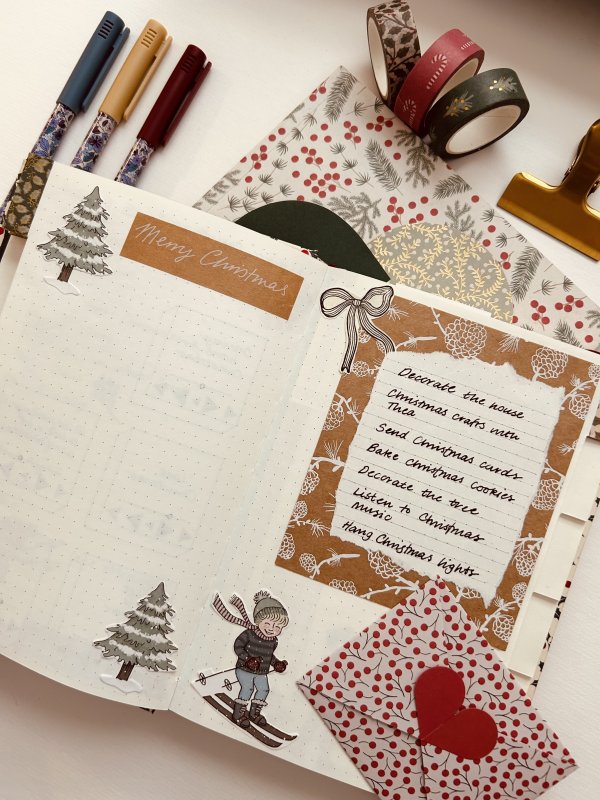 Merry Christmas
Decorate the house
Christmas crafts with
Thea
Send Christmas cards
Bake Christmas cookies
Decorate the tree
Listen to Christmas
music
Hang Christmas lights